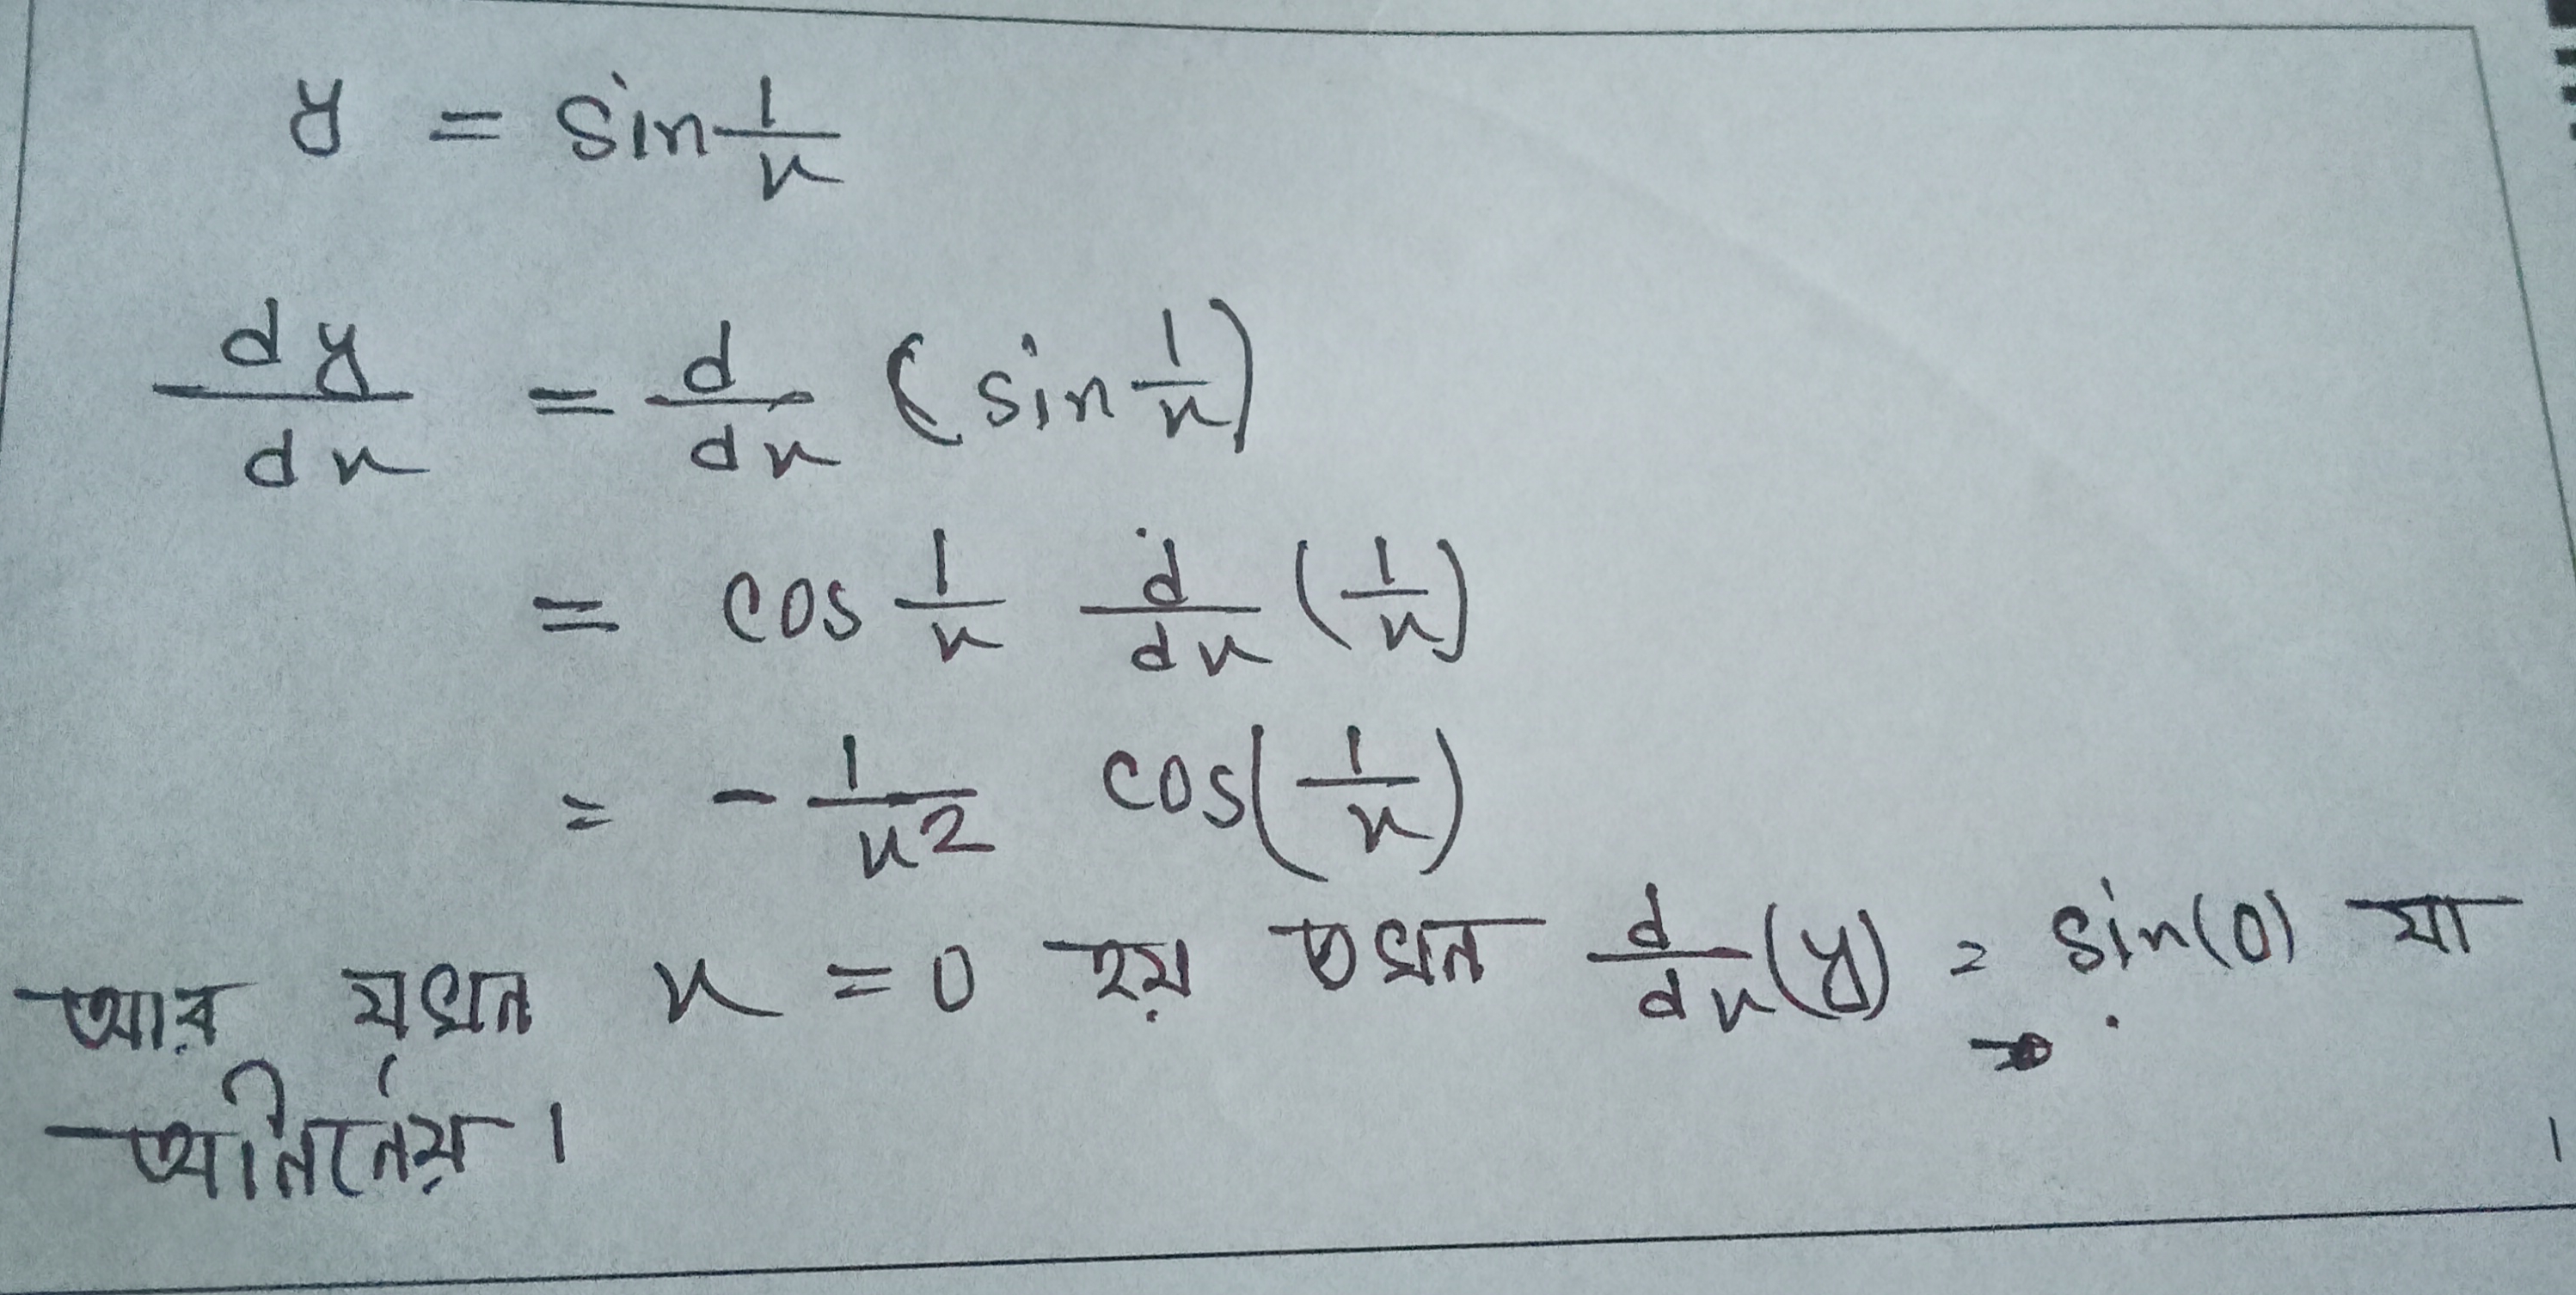 y = sin 1/x
dy/dx = d/dx (sin 1/x)
= cos 1/x d/dx (1/x)
= - 1/x² cos(1/x)
আর যখন x = 0 হয় তখন d/dx (y) = sin(0) যা
অনির্নেয় ।